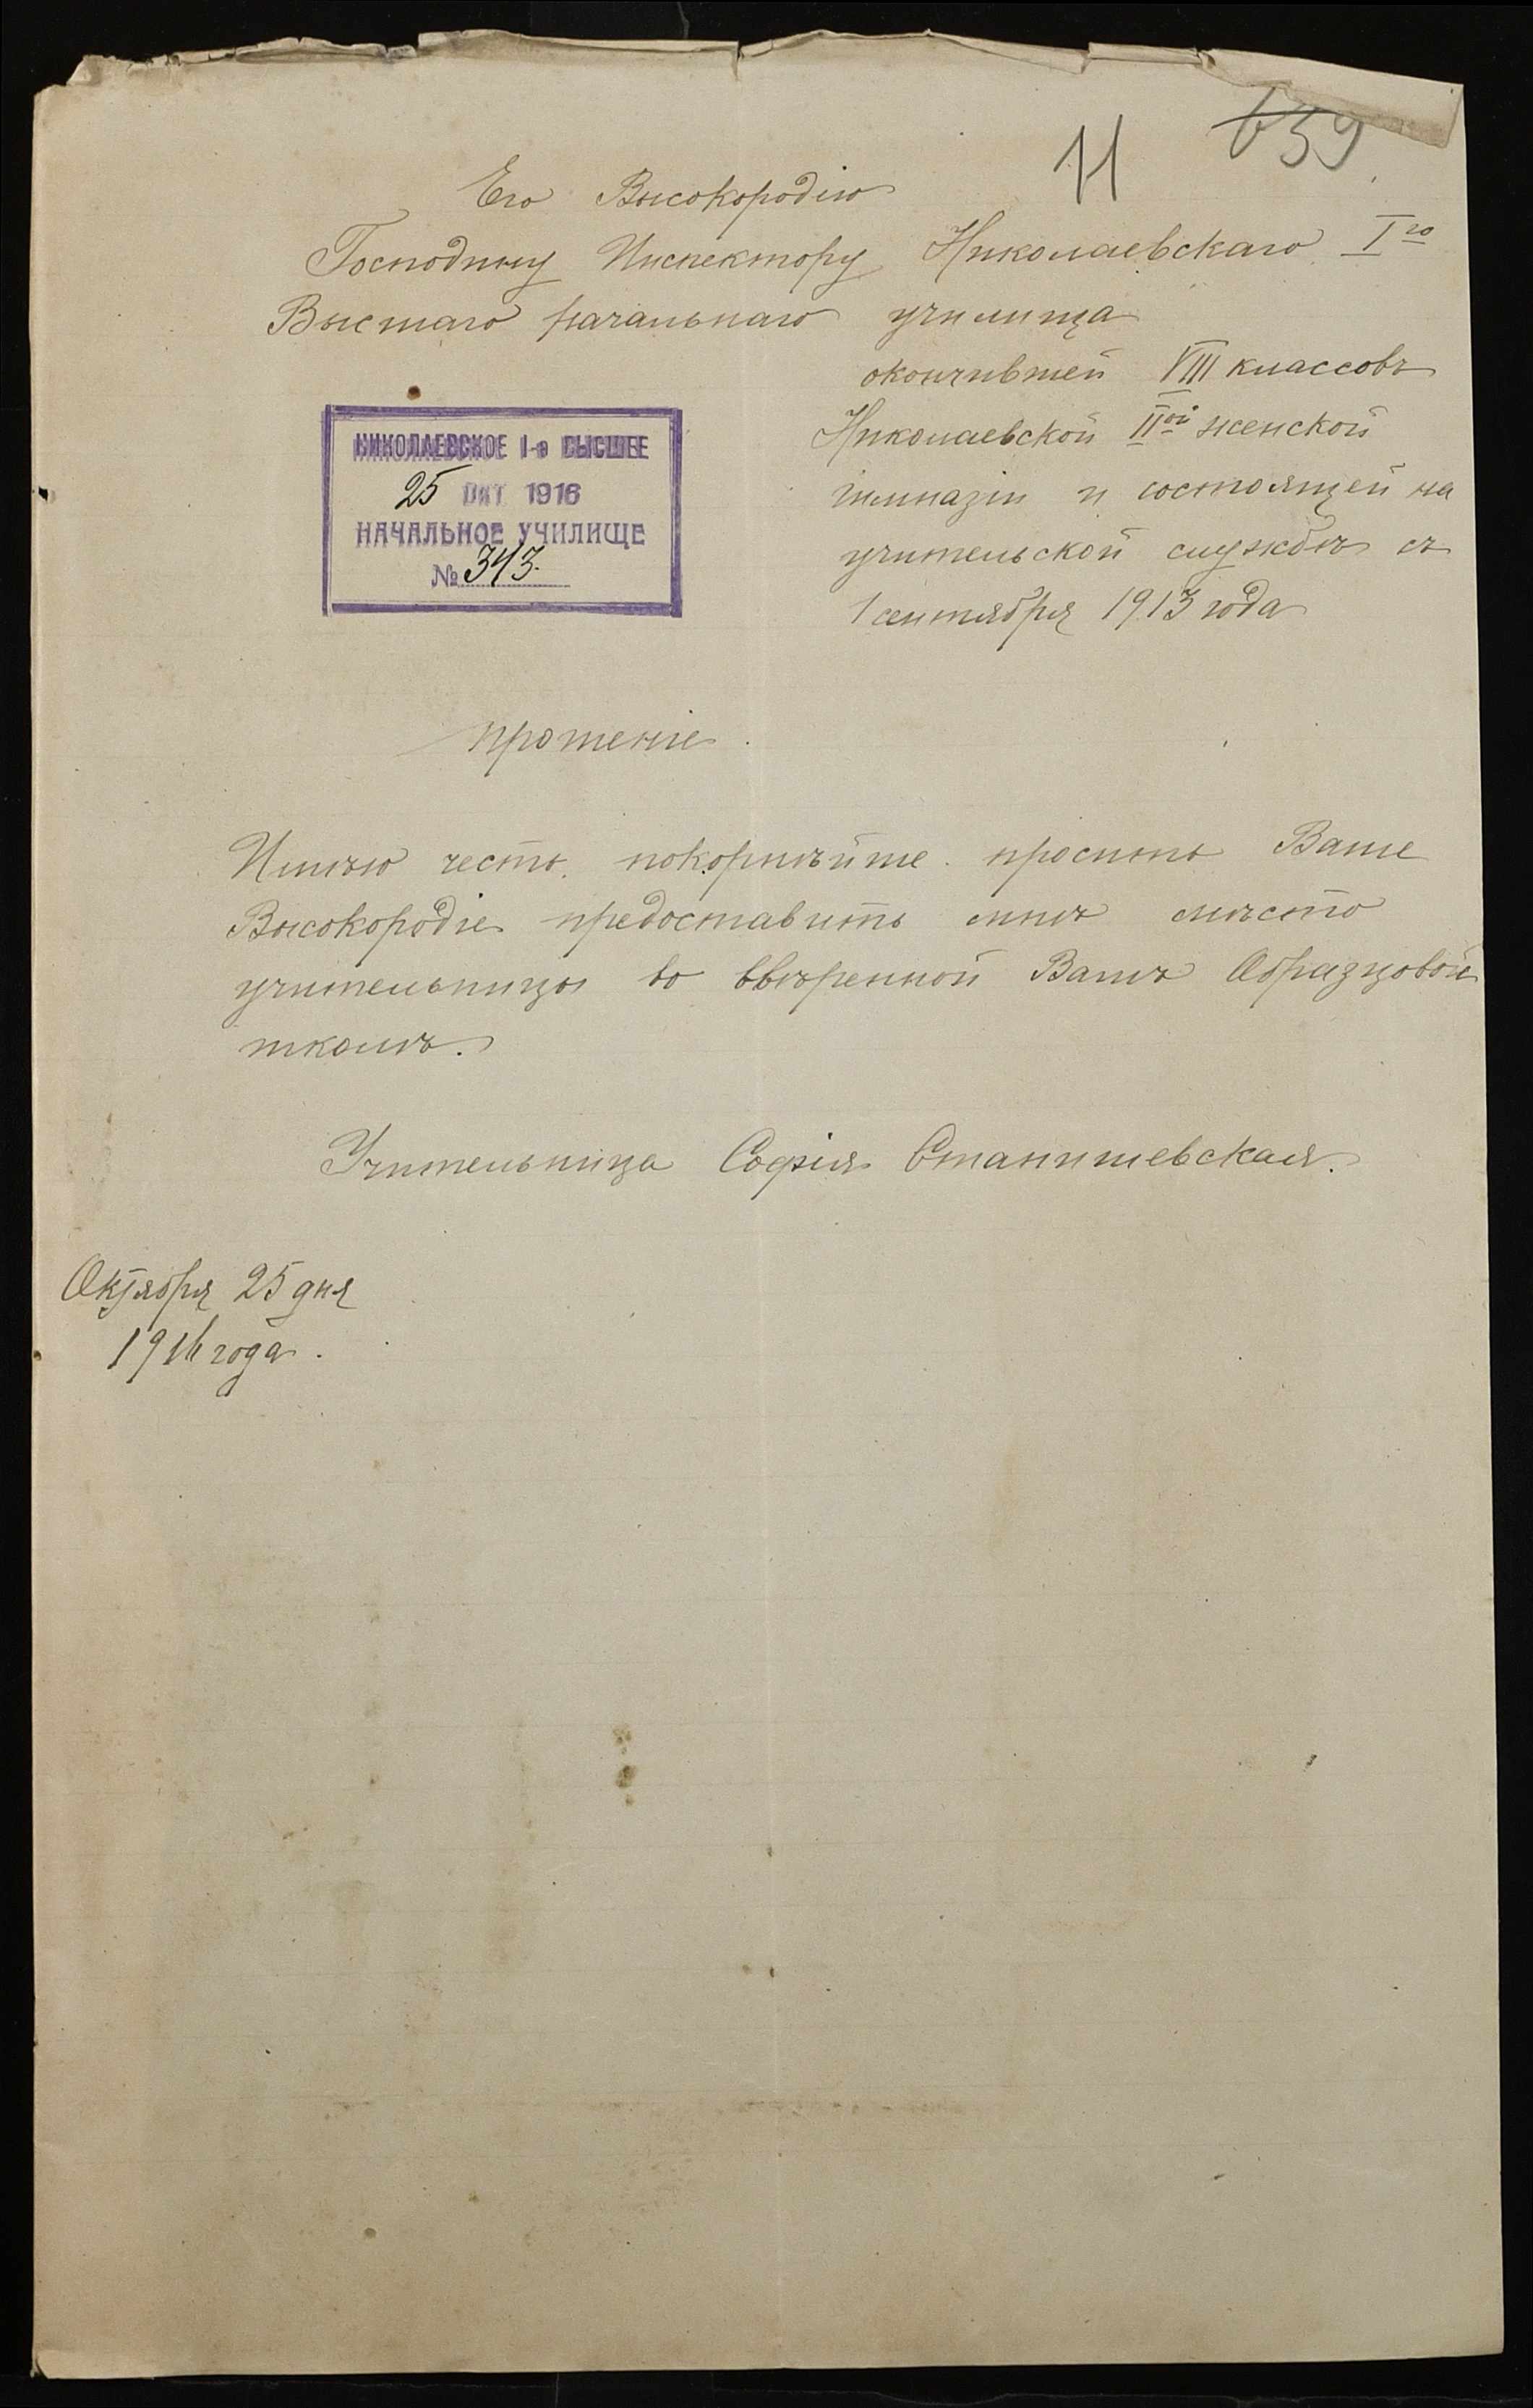 11 639
Его Высокородію
Господину Инспектору Николаевскаго I го
Высшаго начальнаго училища
окончившей VIII классовъ
Николаевской II ой женской
гимназіи и состоящей на
учительской службѣ съ
1 сентября 1913 года
НИКОЛАЕВСКОЕ 1-е ВЫСШЕЕ
25 ОКТ 1916
НАЧАЛЬНОЕ УЧИЛИЩЕ
№ 343.
прошеніе.
Имѣю честь покорнѣйше просить Ваше
Высокородіе предоставить мнѣ мѣсто
учительницы во ввѣренной Вамъ Образцовой
школѣ.
Учительница Софія Станишевская.
Октября 25 дня
1916 года.